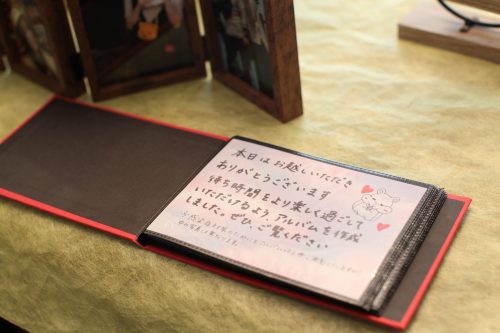 本日はお越しいただき
ありがとうございます
待ち時間をより楽しく過ごして
いただけるよう アルバムを作成
しました。ぜひ、ご覧ください